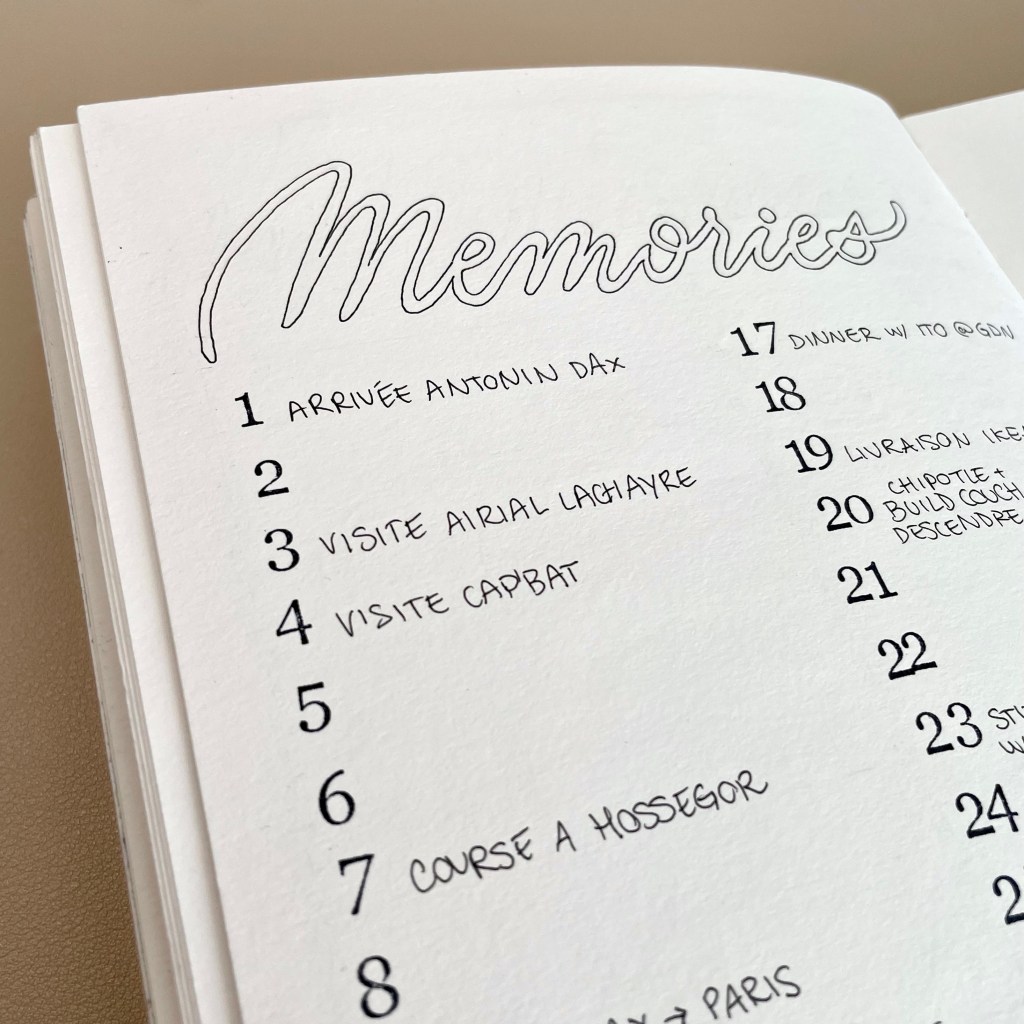 Memories
1 ARRIVÉE ANTONIN DAX
2
3 VISITE AIRIAL LACHAYRE
4 VISITE CAP'BAT
5
6
7 COURSE A HOSSEGOR
8
→ PARIS
17 DINNER W/ ITO @GDN
18
19 LIVRAISON
20 CHIPOTLE +
BUILD COUCH
DESCENDRE
21
22
23
24